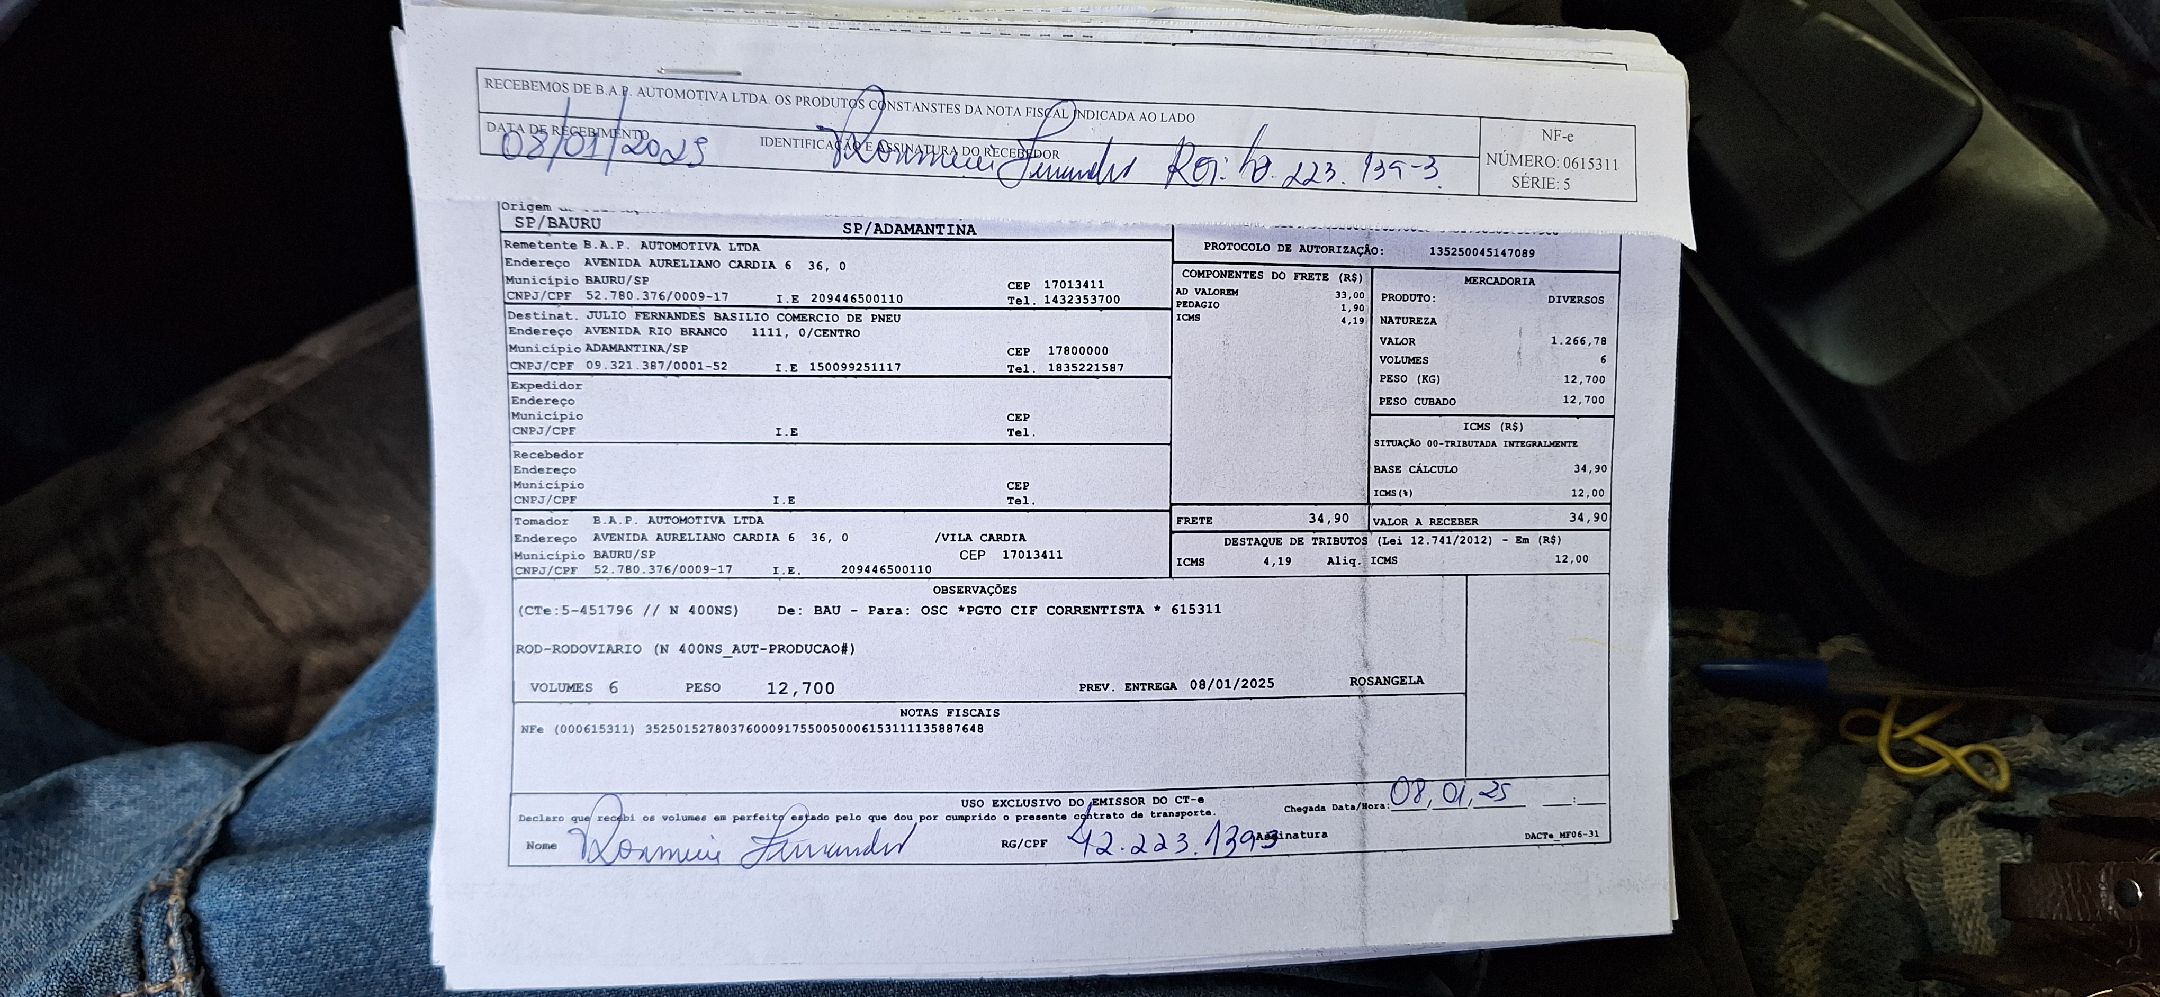 RECEBEMOS DE B.A.P. AUTOMOTIVA LTDA. OS PRODUTOS CONSTANSTES DA NOTA FISCAL INDICADA AO LADO
DATA DE RECEBIMENTO
08/01/2025
IDENTIFICAÇÃO E ASSINATURA DO RECEBEDOR
223.139-3
NF-e
NÚMERO: 0615311
SÉRIE: 5
Origem
SP/BAURU SP/ADAMANTINA
Remetente B.A.P. AUTOMOTIVA LTDA
Endereço AVENIDA AURELIANO CARDIA 6 36, 0
Município BAURU/SP CEP 17013411
CNPJ/CPF 52.780.376/0009-17 I.E 209446500110 Tel. 1432353700
Destinat. JULIO FERNANDES BASILIO COMERCIO DE PNEU
Endereço AVENIDA RIO BRANCO 1111, 0/CENTRO
Município ADAMANTINA/SP CEP 17800000
CNPJ/CPF 09.321.387/0001-52 I.E 150099251117 Tel. 1835221587
Expedidor
Endereço
Município CEP
CNPJ/CPF I.E Tel.
Recebedor
Endereço
Município CEP
CNPJ/CPF I.E Tel.
Tomador B.A.P. AUTOMOTIVA LTDA
Endereço AVENIDA AURELIANO CARDIA 6 36, 0 /VILA CARDIA
Município BAURU/SP CEP 17013411
CNPJ/CPF 52.780.376/0009-17 I.E. 209446500110
PROTOCOLO DE AUTORIZAÇÃO: 135250045147089
COMPONENTES DO FRETE (R$)
AD VALOREM 33,00
PEDAGIO 1,90
ICMS 4,19
MERCADORIA
PRODUTO: DIVERSOS
NATUREZA
VALOR 1.266,78
VOLUMES 6
PESO (KG) 12,700
PESO CUBADO 12,700
ICMS (R$)
SITUAÇÃO 00-TRIBUTADA INTEGRALMENTE
BASE CÁLCULO 34,90
ICMS(%) 12,00
FRETE 34,90 VALOR A RECEBER 34,90
DESTAQUE DE TRIBUTOS (Lei 12.741/2012) - Em (R$)
ICMS 4,19 Aliq. ICMS 12,00
OBSERVAÇÕES
(CTe:5-451796 // N 400NS) De: BAU - Para: OSC *PGTO CIF CORRENTISTA * 615311
ROD-RODOVIARIO (N 400NS_AUT-PRODUCAO#)
VOLUMES 6 PESO 12,700 PREV. ENTREGA 08/01/2025 ROSANGELA
NOTAS FISCAIS
NFe (000615311) 35250152780376000917550050006153111135887648
USO EXCLUSIVO DO EMISSOR DO CT-e
Chegada Data/Hora: 08,01,25 __:__
Declaro que recebi os volumes em perfeito estado pelo que dou por cumprido o presente contrato de transporte.
Nome RG/CPF 42.223.1393 Assinatura DACTe_MF06-31